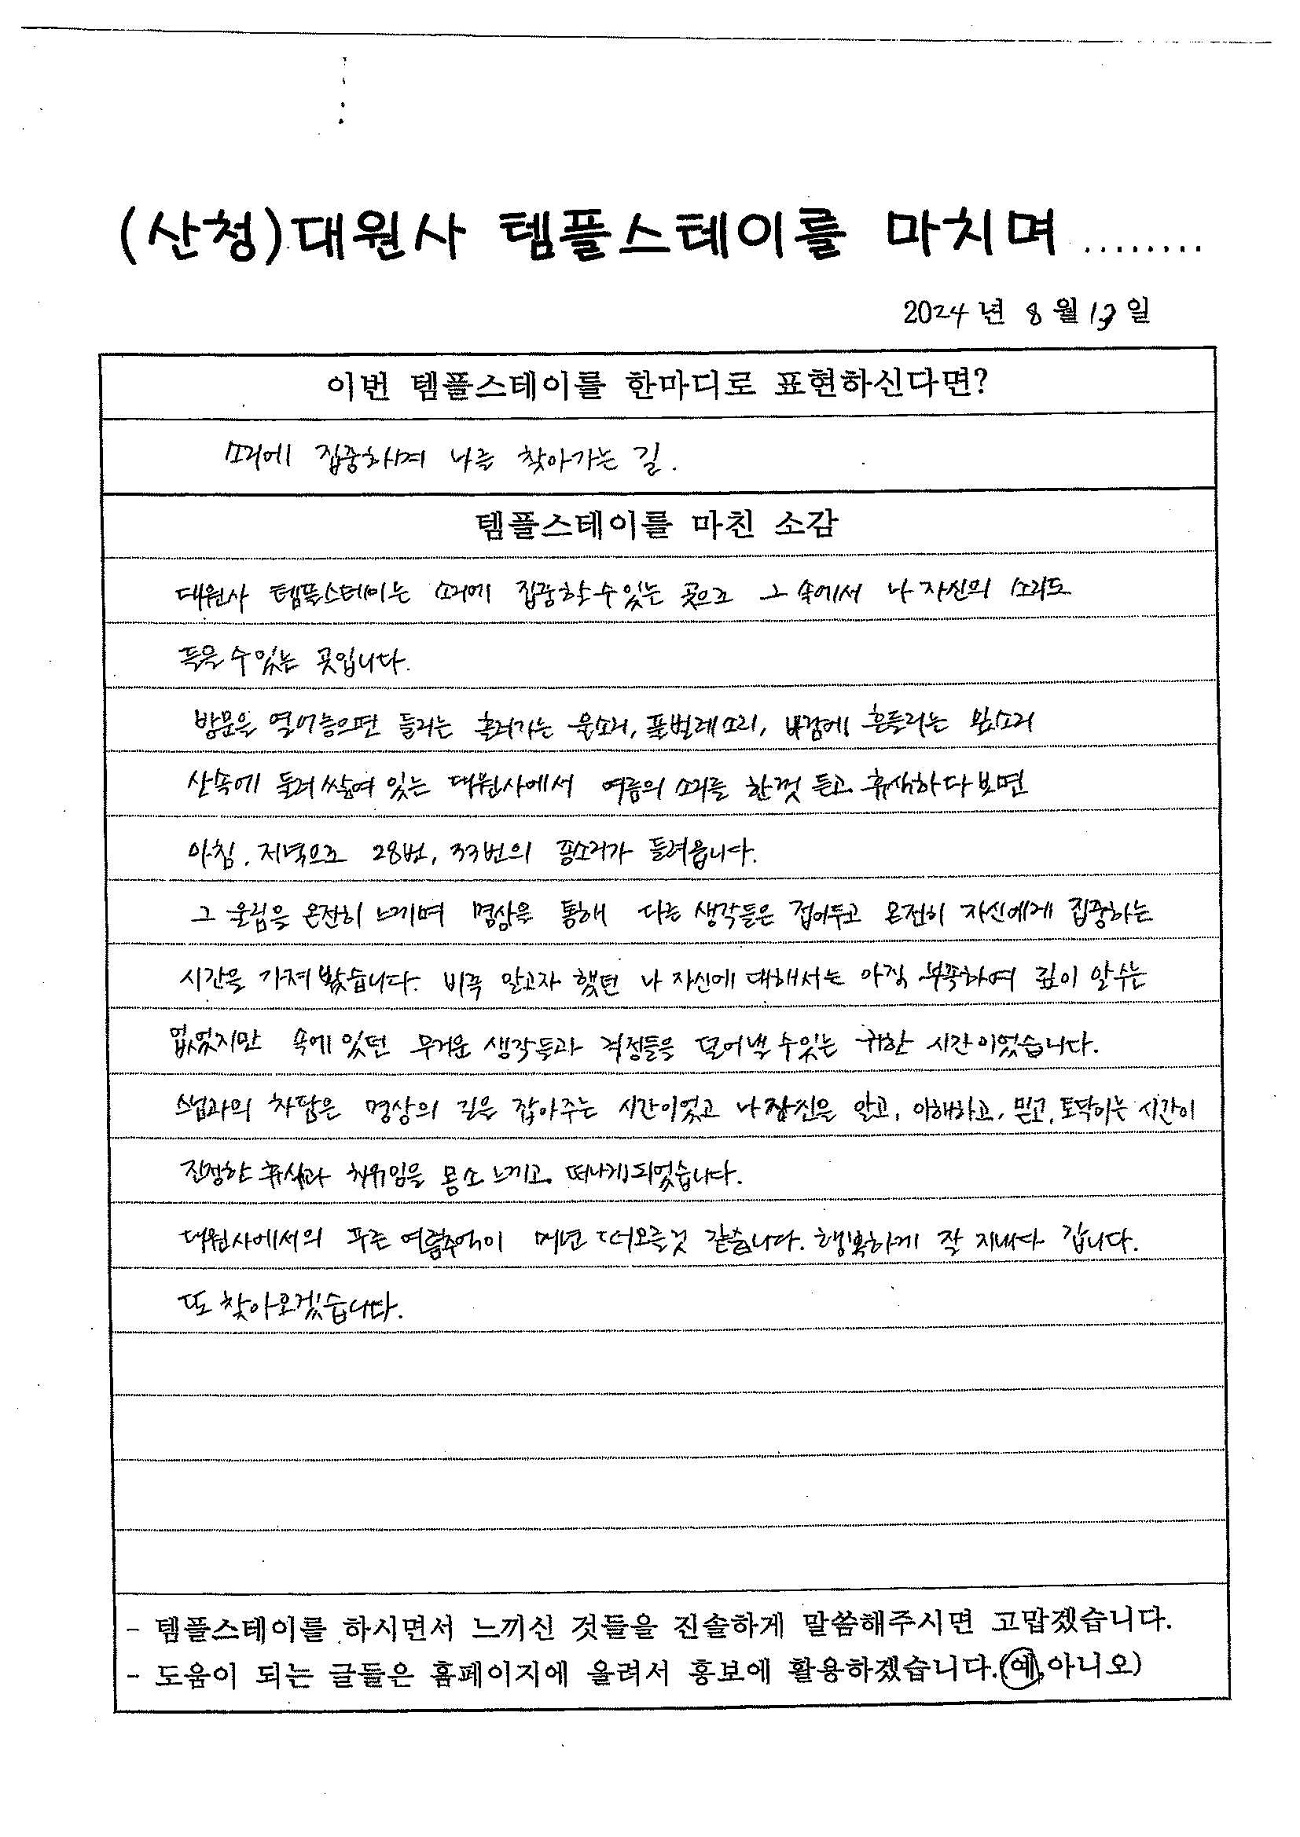 (산청)대원사 템플스테이를 마치며........
2024년 8월 13일
이번 템플스테이를 한마디로 표현하신다면?
소리에 집중하며 나를 찾아가는 길.
템플스테이를 마친 소감
대원사 템플스테이는 소리에 집중할 수 있는 곳으로 그 속에서 나 자신의 소리도
들을 수 있는 곳입니다.
방문을 열어놓으면 들리는 흘러가는 물소리, 풀벌레소리, 바람에 흔들리는 소리
산속에 둘려 쌓여 있는 대원사에서 여름의 소리를 한껏 듣고 휴식하다보면
아침, 저녁으로 28번, 33번의 종소리가 들려옵니다.
그 울림을 온전히 느끼며 명상을 통해 다른 생각들은 접어두고 온전히 자신에게 집중하는
시간을 가져 봤습니다. 비록 알고자 했던 나 자신에 대해서는 아직 부족하여 깊이 알 수는
없었지만 속에 있던 무거운 생각들과 걱정들을 덜어낼 수 있는 귀한 시간이었습니다.
스님과의 차담은 명상의 길을 잡아주는 시간이었고 나 자신을 알고, 이해하고, 믿고, 토닥이는 시간이
진정한 휴식과 채움임을 몸소 느끼고 떠나게 되었습니다.
대원사에서의 푸른 여름추억이 매년 떠오를것 같습니다. 행복하게 잘 지내다 갑니다.
또 찾아오겠습니다.
- 템플스테이를 하시면서 느끼신 것들을 진솔하게 말씀해주시면 고맙겠습니다.
- 도움이 되는 글들은 홈페이지에 올려서 홍보에 활용하겠습니다.(예,아니오)